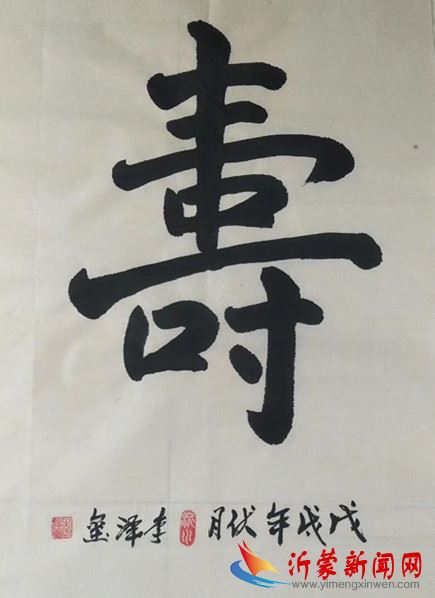 壽
戊戌年伏月 李泽
沂蒙新闻网
www.yimengxinwen.com